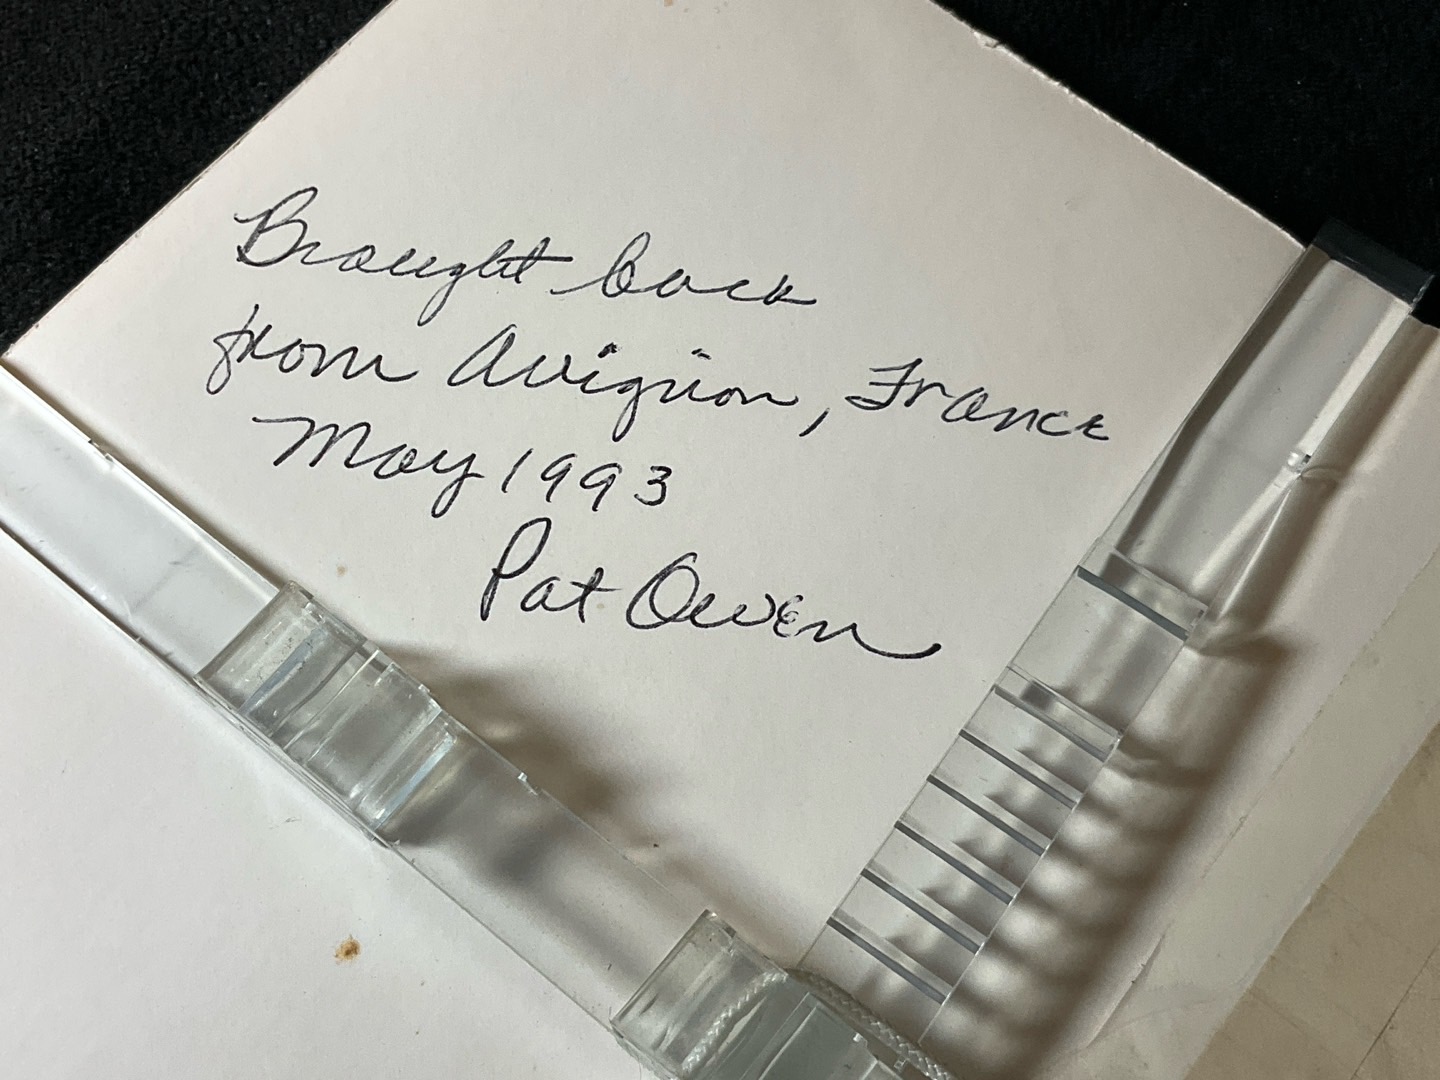 Brought back
from Avignon, France
May 1993
Pat Owen